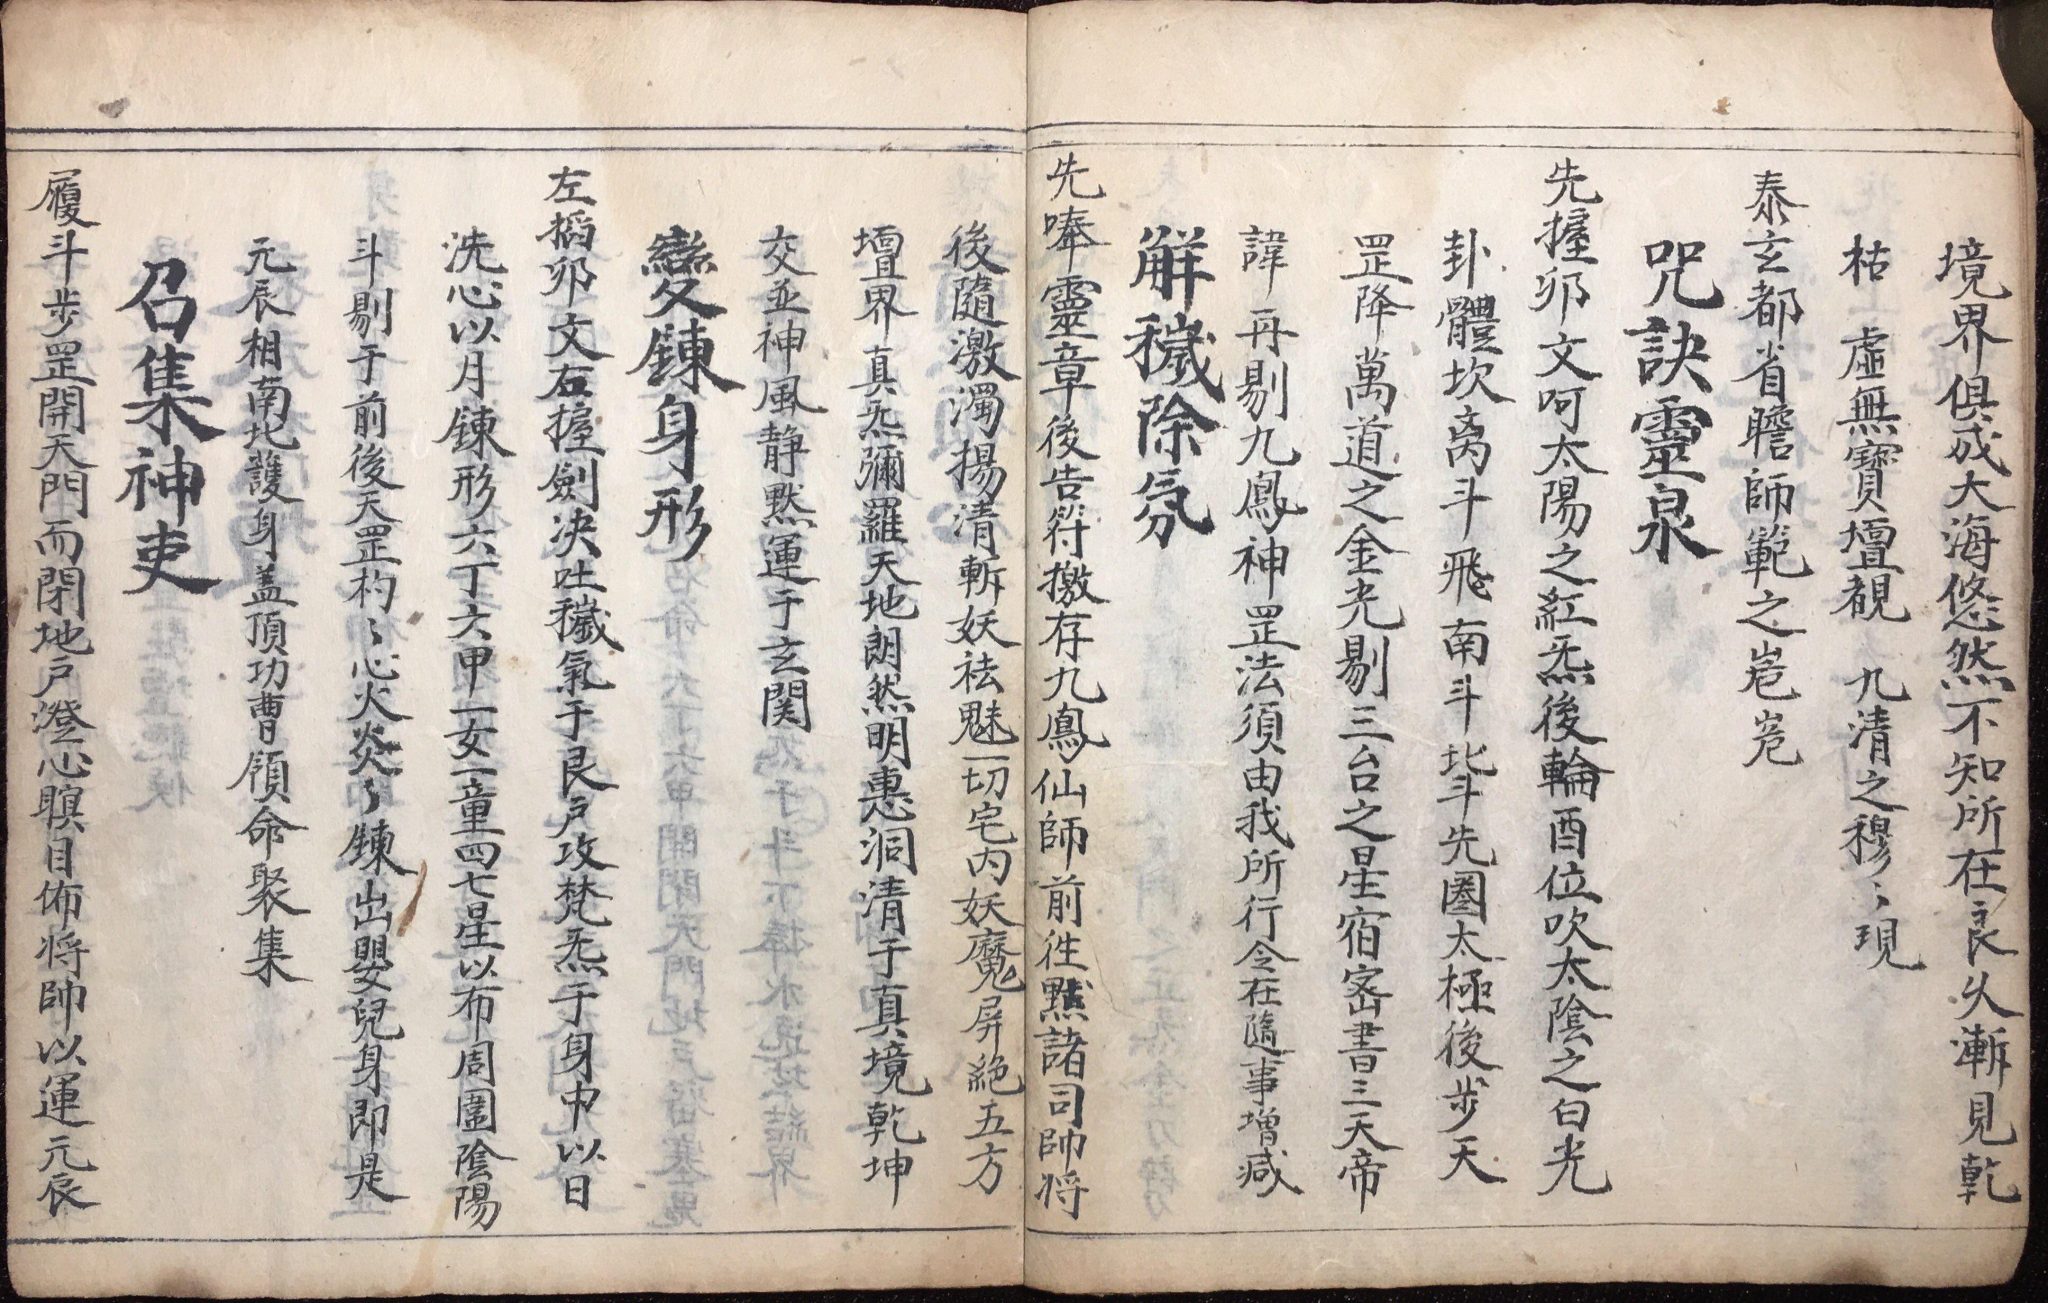 境界俱成大海悠然不知所在良久漸見乾
枯 虛無寶壇覩 九清之穆〻現
泰玄都省瞻師範之嵬嵬
咒訣靈泉
先握卯文呵太陽之紅炁後輪酉位吹太陰之白光
卦體坎离斗飛南斗北斗先圏太極後步天
罡降萬道之金光剔三台之星宿密書三天帝
諱再剔九鳳神罡法須由我所行令在隨事增咸
解穢除氛
先唪靈章後告符檄存九鳳仙師前徃黙諸司帥将
後隨激濁揚清斬妖祛魅一切宅內妖魔屏絕五方
壇界真炁彌羅天地朗然明惠洞清于真境乾坤
交並神風静黙運于玄関
變鍊身形
左搯卯文右握劍决吐穢氣于艮户攻梵炁于身中以日
洗心以月鍊形六丁六甲一女一童四七星以布周圍陰陽
斗剔于前後天罡杓〻心火炎〻鍊出嬰兒身即是
元辰相南北護身盖頂功曹領命聚集
召集神吏
履斗步罡開天門而閉地户澄心瞑目佈将帥以運元辰